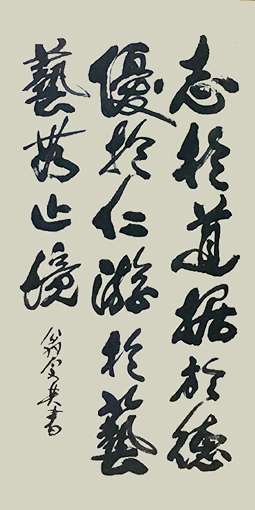 志於道据於德
優於仁游於藝
藝無止境
書